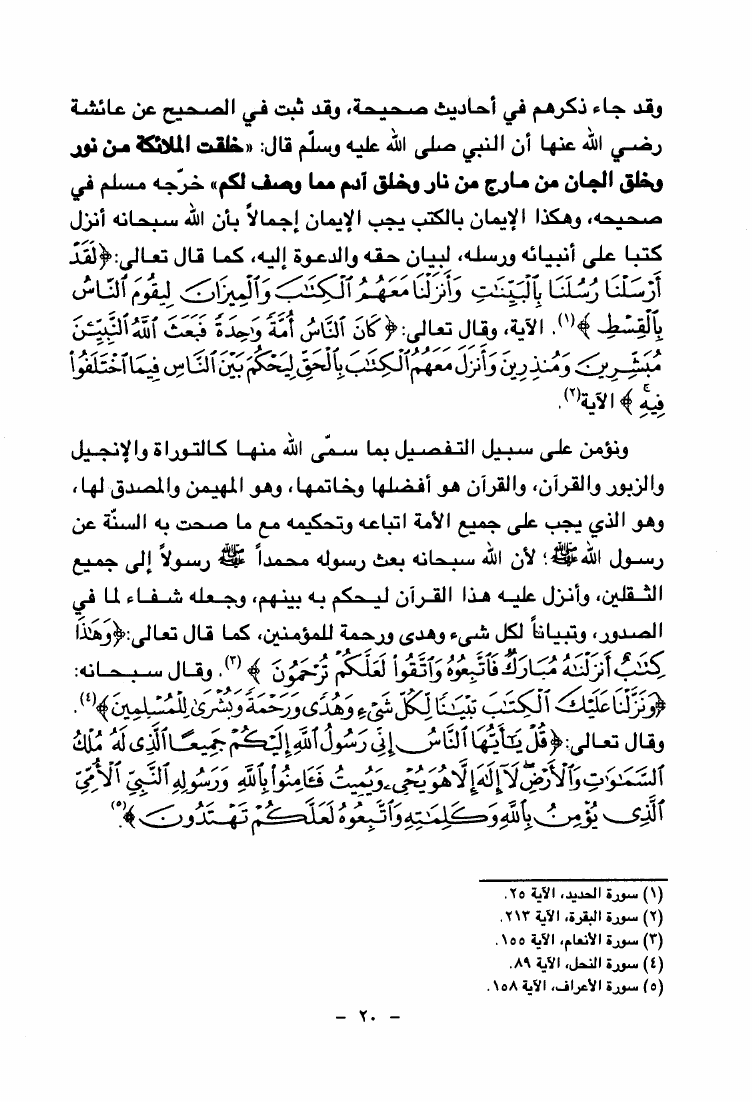 وقد جاء ذكرهم في أحاديث صحيحة، وقد ثبت في الصحيح عن عائشة
رضي الله عنها أن النبي صلى الله عليه وسلّم قال: «خلقت الملائكة من نور
وخلق الجان من مارج من نار وخلق آدم مما وصف لكم» خرّجه مسلم في
صحيحه، وهكذا الإيمان بالكتب يجب الإيمان إجمالاً بأن الله سبحانه أنزل
كتبا على أنبيائه ورسله، لبيان حقه والدعوة إليه، كما قال تعالى: ﴿لَقَدْ
أَرْسَلْنَا رُسُلَنَا بِالْبَيِّنَٰتِ وَأَنزَلْنَا مَعَهُمُ الْكِتَٰبَ وَالْمِيزَانَ لِيَقُومَ النَّاسُ
بِالْقِسْطِ ﴾(١). الآية، وقال تعالى: ﴿كَانَ النَّاسُ أُمَّةً وَٰحِدَةً فَبَعَثَ اللَّهُ النَّبِيِّـۧنَ
مُبَشِّرِينَ وَمُنذِرِينَ وَأَنزَلَ مَعَهُمُ الْكِتَٰبَ بِالْحَقِّ لِيَحْكُمَ بَيْنَ النَّاسِ فِيمَا اخْتَلَفُوا
فِيهِ ۚ ﴾ الآية(٢).
ونؤمن على سبيل التفصيل بما سمّى الله منها كالتوراة والإنجيل
والزبور والقرآن، والقرآن هو أفضلها وخاتمها، وهو المهيمن والمصدق لها،
وهو الذي يجب على جميع الأمة اتباعه وتحكيمه مع ما صحت به السنّة عن
رسول الله ﷺ؛ لأن الله سبحانه بعث رسوله محمداً ﷺ رسولاً إلى جميع
الثقلين، وأنزل عليه هذا القرآن ليحكم به بينهم، وجعله شفاء لما في
الصدور، وتبياناً لكل شيء وهدى ورحمة للمؤمنين، كما قال تعالى: ﴿وَهَٰذَا
كِتَٰبٌ أَنزَلْنَٰهُ مُبَارَكٌ فَاتَّبِعُوهُ وَاتَّقُوا لَعَلَّكُمْ تُرْحَمُونَ ﴾(٣). وقال سبحانه:
﴿وَنَزَّلْنَا عَلَيْكَ الْكِتَٰبَ تِبْيَٰنًا لِكُلِّ شَيْءٍ وَهُدًى وَرَحْمَةً وَبُشْرَىٰ لِلْمُسْلِمِينَ﴾(٤).
وقال تعالى: ﴿قُلْ يَٰٓأَيُّهَا النَّاسُ إِنِّي رَسُولُ اللَّهِ إِلَيْكُمْ جَمِيعًا الَّذِي لَهُ مُلْكُ
السَّمَٰوَٰتِ وَالْأَرْضِ لَآ إِلَٰهَ إِلَّا هُوَ يُحْيِۦ وَيُمِيتُ فَـَٔامِنُوا بِاللَّهِ وَرَسُولِهِ النَّبِيِّ الْأُمِّيِّ
الَّذِي يُؤْمِنُ بِاللَّهِ وَكَلِمَٰتِهِ وَاتَّبِعُوهُ لَعَلَّكُمْ تَهْتَدُونَ ﴾(٥).
(١) سورة الحديد، الآية ٢٥.
(٢) سورة البقرة، الآية ٢١٣.
(٣) سورة الأنعام، الآية ١٥٥.
(٤) سورة النحل، الآية ٨٩.
(٥) سورة الأعراف، الآية ١٥٨.
- ٢٠ -